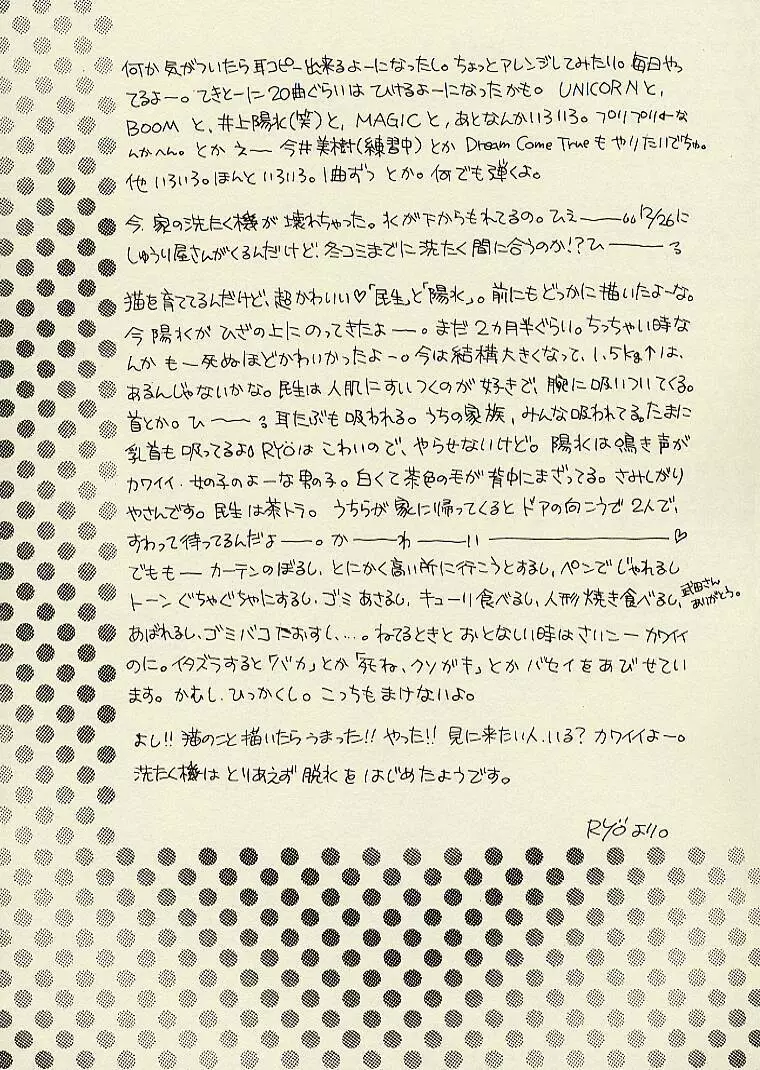 何か気がついたら耳コピー出来るよーになったし。ちょっとアレンジしてみたり。毎日やっ
てるよー。てきとーに20曲ぐらいは ひけるよーになったかも。UNICORNと、
BOOM と、井上陽水(笑)と、MAGICと、あとなんかいろいろ。プリプリもーな
んかへん。とか えー 今井美樹(練習中) とか Dream Come Trueも やりたいでちゅ。
他 いろいろ。ほんと いろいろ。1曲ずつ とか。何でも弾くよ。
今、家の洗たく機が 壊れちゃった。水が下からもれてるの。ひえ――"12/26に
しゅうり屋さんがくるんだけど、冬コミまでに洗たく間に合うのか!?ひ――る
猫を育ててるんだけど、超かわいい♡「民生」と「陽水」。前にもどっかに描いたよーな。
今 陽水が ひざの上にのってきたよー。まだ 2ヵ月半ぐらい。ちっちゃい時な
んか もー死ぬほどかわいかったよー。今は結構大きくなって、1.5kg↑は、
あるんじゃないかな。民生は人肌にすいつくのが好きで、腕に吸いついてくる。
首とか。ひ――る 耳たぶも吸われる。うちの家族、みんな吸われてる。たまに
乳首も吸ってるよ。RYÖは こわいので、やらせないけど。陽水は鳴き声が
カワイイ、女の子のよーな男の子。白くて茶色の毛が背中にまざってる。さみしがり
やさんです。民生は茶トラ。 うちらが 家に帰ってくると ドアの向こうで 2人で、
すわって待ってるんだよ――。か――わ――いい――――――♡
でももー カーテンのぼるし、とにかく高い所に行こうとするし、ペンでじゃれるし
トーンぐちゃぐちゃにするし、ゴミあさるし、キューリ食べるし、人形焼き食べるし、武田さんありがとう。
あばれるし、ゴミバコたおすし、…。ねてるときと おとなしい時は さいこーカワイイ
のに。イタズラすると「バカ」とか「死ね、クソガキ」とか バセイを あびせてい
ます。かむし、ひっかくし。こっちもまけないよ。
よし!! 猫のこと描いたらうまった!! やった!! 見に来たい人、いる? カワイイよー。
洗たく機は とりあえず 脱水を はじめたようです。
RYÖより。